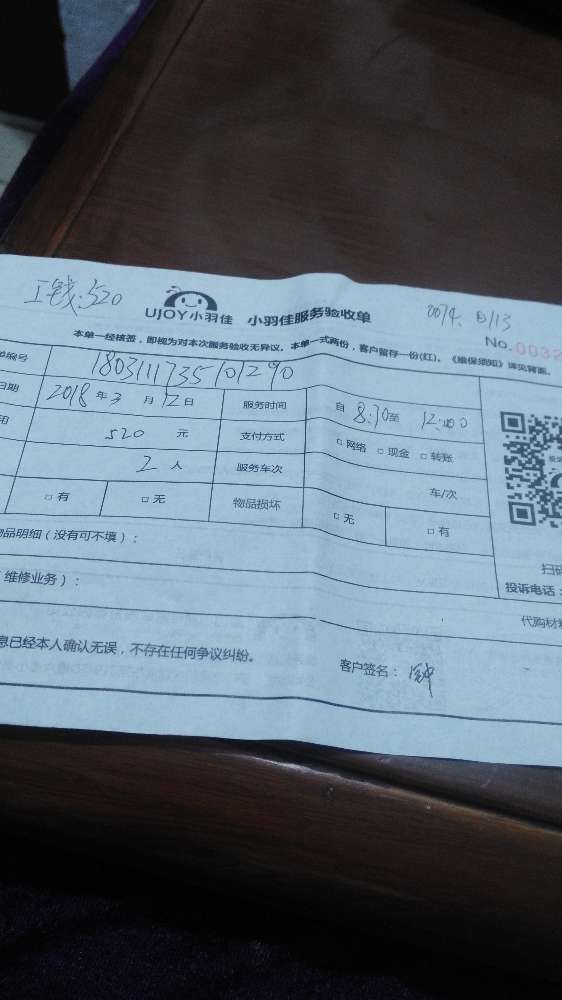 工钱:520
UJOY小羽佳 小羽佳服务验收单
No.0032
本单一经核签，即视为对本次服务验收无异议。本单一式两份，客户留存一份(红)。《维保须知》详见背面。
单编号 18031117350101290
日期 2018年3月12日 服务时间 自8:30至12:00
520元 支付方式 □网络 □现金 □转账
2人 服务车次 车/次
□有 □无 物品损坏 □无 □有
物品明细（没有可不填）：
扫码
维修业务）：
投诉电话：
代购材料
息已经本人确认无误，不存在任何争议纠纷。
客户签名：钟